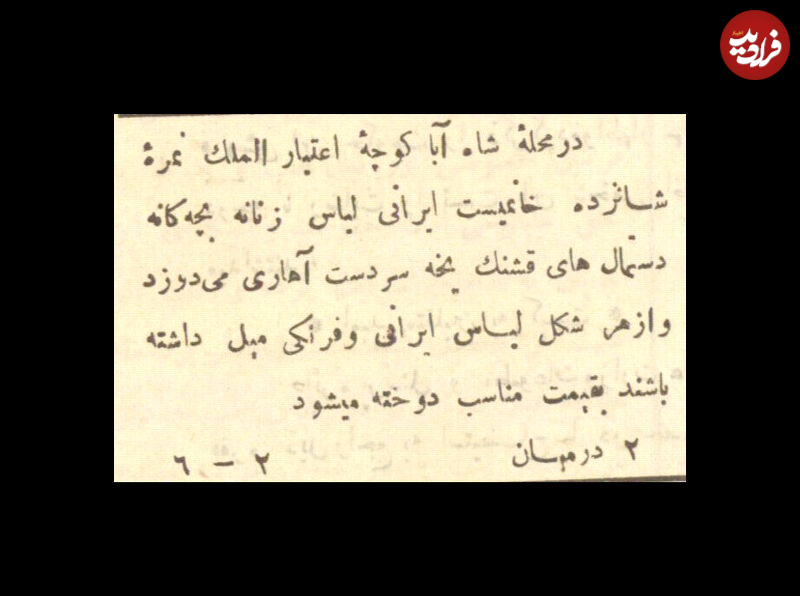 فرادید
اخبار
در محلهٔ شاه آبا کوچهٔ اعتبار الملك نمرهٔ
شانزده خانمیست ایرانی لباس زنانه بچه کانه
دستمال های قشنك یخه سردست آهاری می‌دوزد
و از هر شکل لباس ایرانی وفرنکی میل داشته
باشند بقیمت مناسب دوخته میشود
۲ درمیان
۲ – ٦